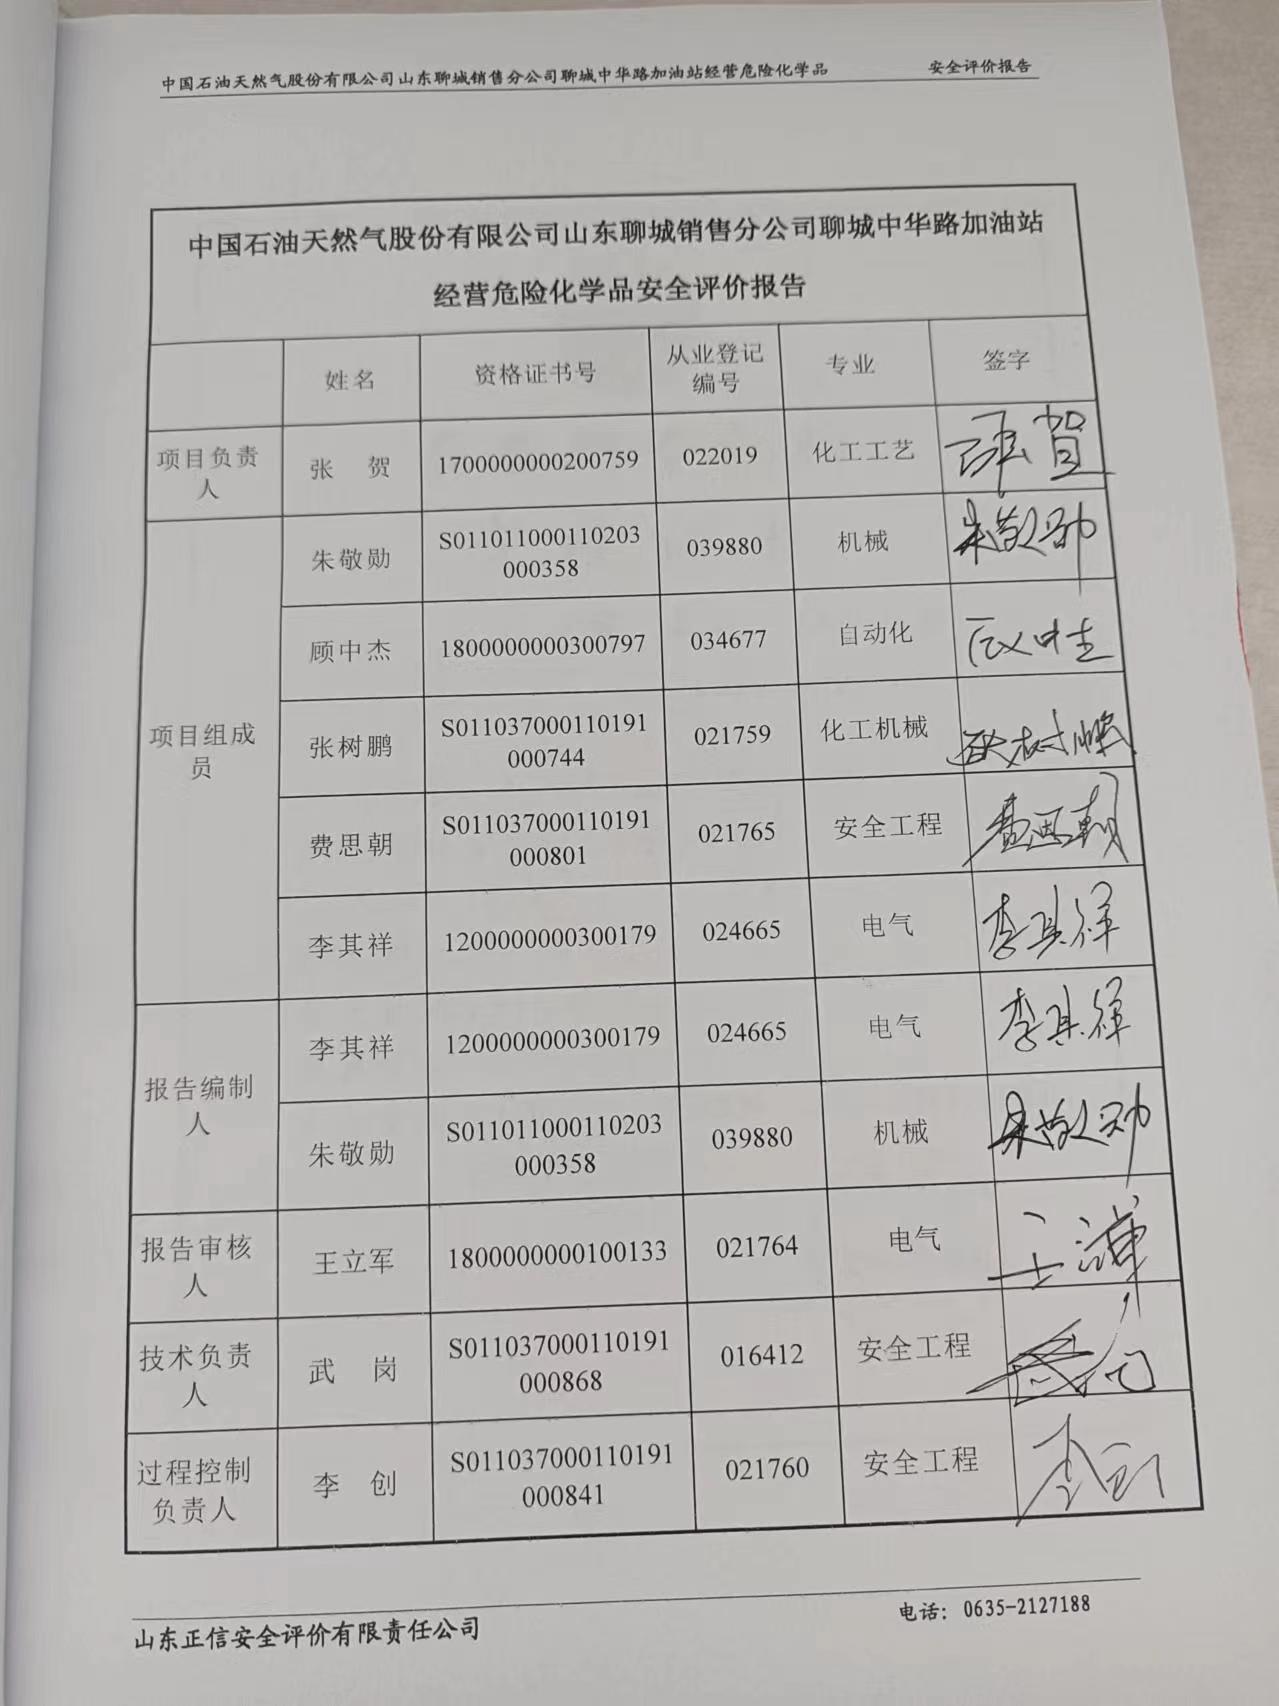 中国石油天然气股份有限公司山东聊城销售分公司聊城中华路加油站经营危险化学品 安全评价报告
中国石油天然气股份有限公司山东聊城销售分公司聊城中华路加油站
经营危险化学品安全评价报告
姓名 资格证书号 从业登记 专业 签字
编号
项目负责 张 贺 1700000000200759 022019 化工工艺 张贺
人
项目组成
员
朱敬勋 S011011000110203 039880 机械 朱敬勋
000358
顾中杰 1800000000300797 034677 自动化 顾中杰
张树鹏 S011037000110191 021759 化工机械 张树鹏
000744
费思朝 S011037000110191 021765 安全工程 费思朝
000801
李其祥 1200000000300179 024665 电气 李其祥
报告编制
人
李其祥 1200000000300179 024665 电气 李其祥
朱敬勋 S011011000110203 039880 机械 朱敬勋
000358
报告审核 王立军 1800000000100133 021764 电气 王立军
人
技术负责 武 岗 S011037000110191 016412 安全工程 武岗
人 000868
过程控制 李 创 S011037000110191 021760 安全工程 李创
负责人 000841
山东正信安全评价有限责任公司 电话：0635-2127188